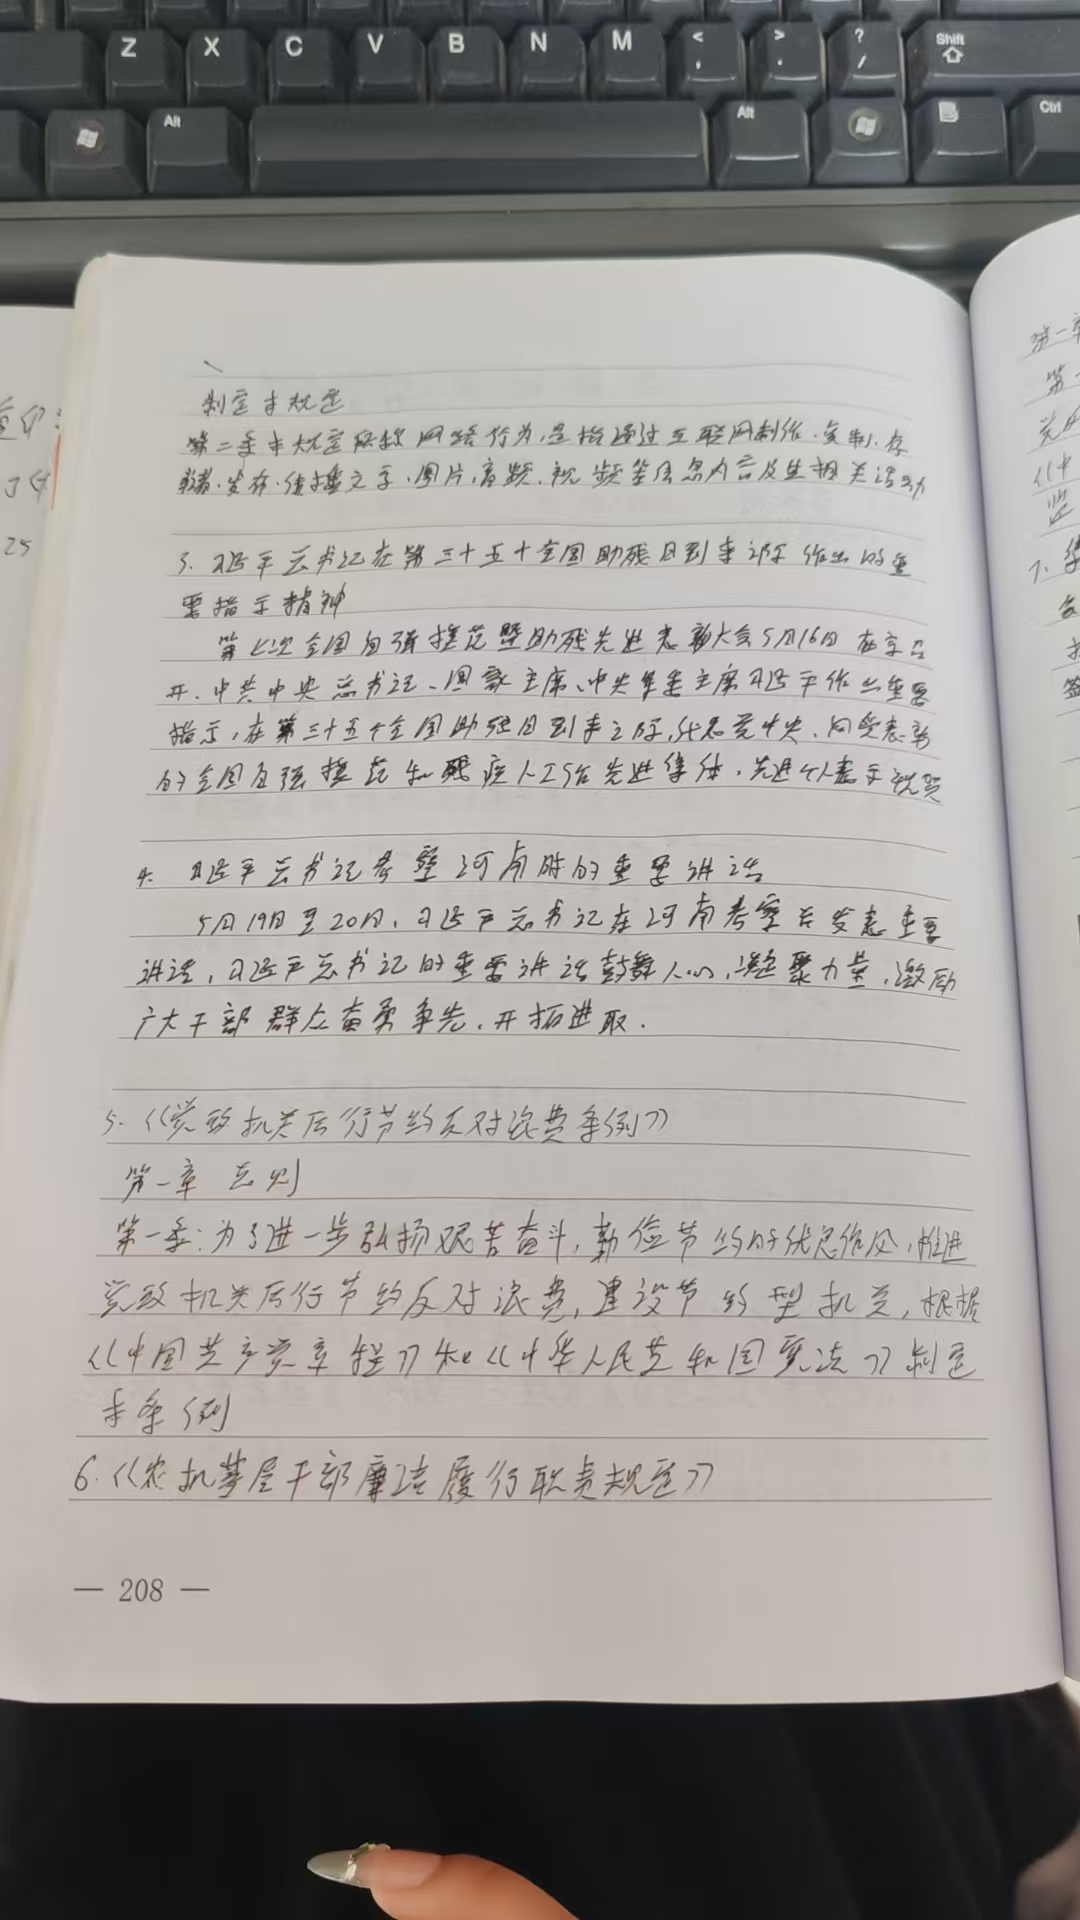 Z X C V B N M < , > . ? / Shift
Alt Alt Ctrl
制定本规定
第二条本规定所称网络行为,是指通过互联网制作、复制、存
储、发布、传播文字、图片、音频、视频等信息内容及其相关活动
3. 习近平总书记在第三十五个全国助残日到来之际作出的重
要指示精神
第七次全国自强模范暨助残先进表彰大会5月16日在京召
开。中共中央总书记、国家主席、中央军委主席习近平作出重要
指示,在第三十五个全国助残日到来之际,代表党中央、向受表彰
的全国自强模范和残疾人工作先进集体、先进个人表示祝贺
4. 习近平总书记考察河南时的重要讲话
5月19日至20日、习近平总书记在河南考察后发表重要
讲话,习近平总书记的重要讲话鼓舞人心,凝聚力量,激励
广大干部群众奋勇争先、开拓进取.
5.《党政机关厉行节约反对浪费条例》
第一章 总则
第一条:为了进一步弘扬艰苦奋斗,勤俭节约的优良作风,推进
党政机关厉行节约反对浪费,建设节约型机关,根据
《中国共产党章程》和《中华人民共和国宪法》制定
本条例
6.《农机基层干部廉洁履行职责规定》
— 208 —
25
第一章
第一
党的
《中
7.